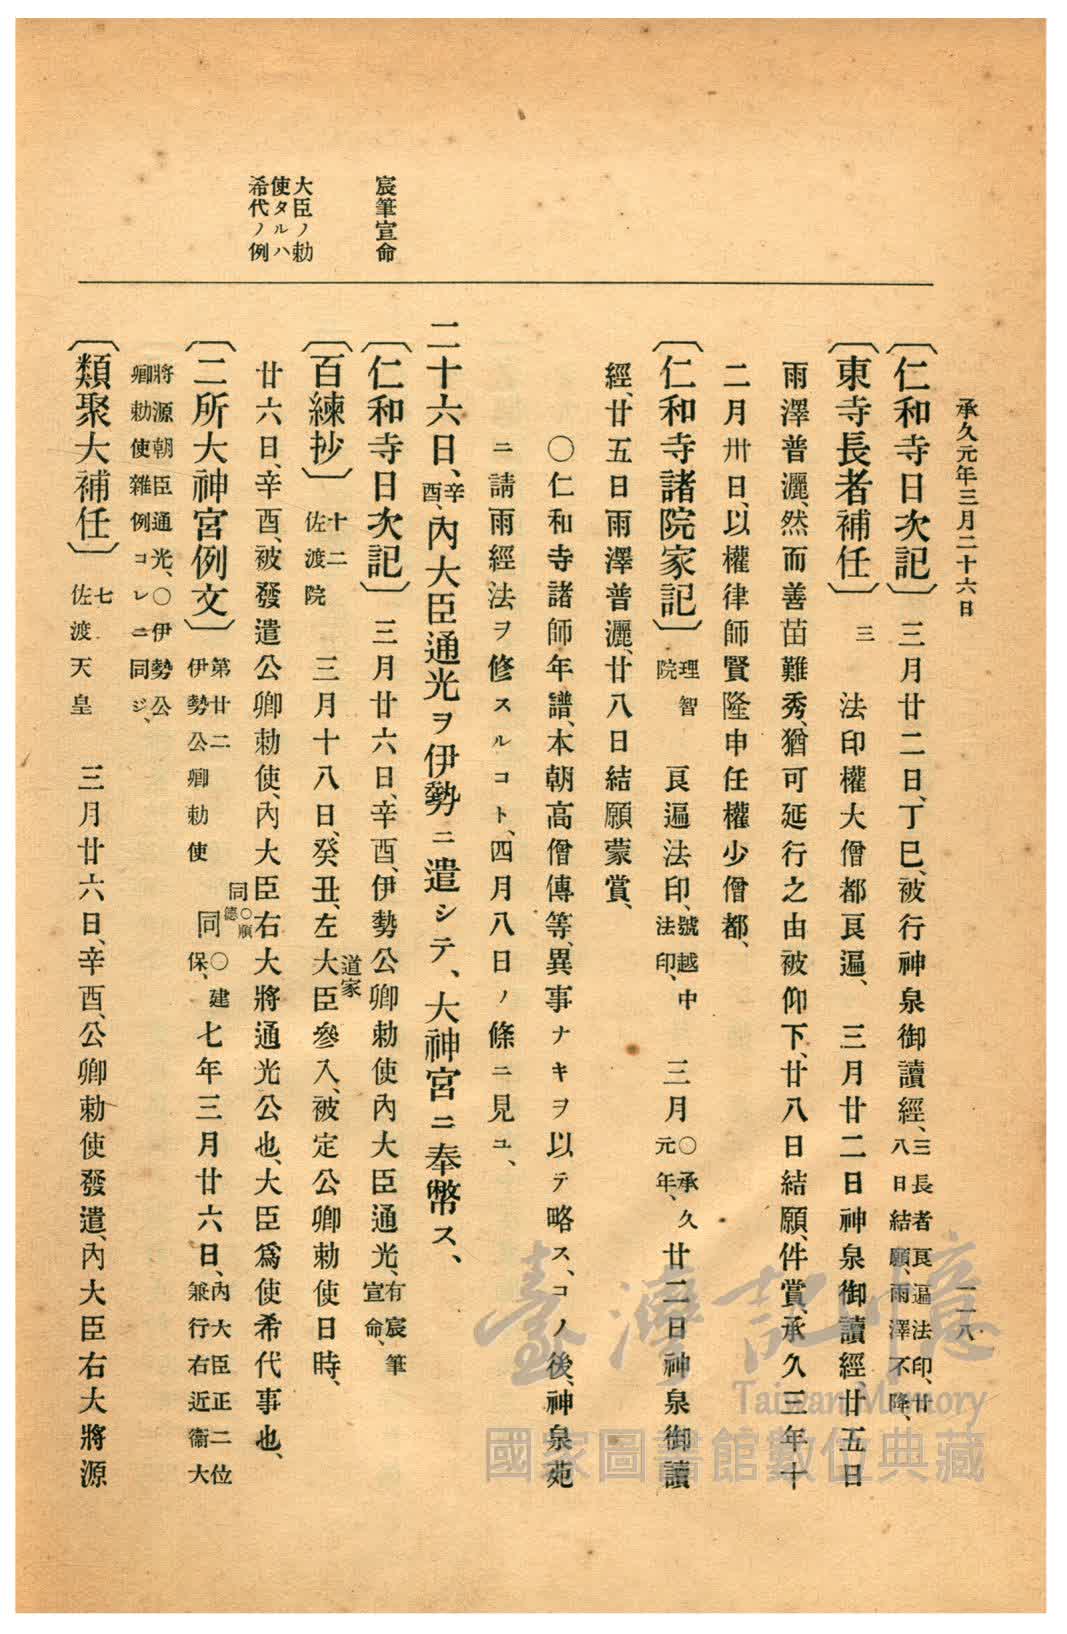 承久元年三月二十六日
一一八
〔仁和寺日次記〕三月廿二日、丁巳、被行神泉御讀經、三長者良遍法印、廿八日結願、雨澤不降、
〔東寺長者補任〕三 法印權大僧都良遍、三月廿二日神泉御讀經、廿五日
雨澤普灑、然而善苗難秀、猶可延行之由被仰下、廿八日結願、件賞、承久三年十
二月卅日、以權律師賢隆申任權少僧都、
〔仁和寺諸院家記〕理智院 良遍法印、號越中法印、 三月〇承久元年、廿二日神泉御讀
經、廿五日雨澤普灑、廿八日結願蒙賞、
〇仁和寺諸師年譜、本朝高僧傳等、異事ナキヲ以テ略ス、コノ後、神泉苑
ニ請雨經法ヲ修スルコト、四月八日ノ條ニ見ユ、
二十六日、辛酉、內大臣通光ヲ伊勢ニ遣シテ、大神宮ニ奉幣ス、
宸筆宣命
〔仁和寺日次記〕三月廿六日、辛酉、伊勢公卿勅使內大臣通光、有宸筆宣命、
〔百練抄〕十二佐渡院 三月十八日、癸丑、左大臣道家參入、被定公卿勅使日時、
大臣ノ勅
使タルハ
希代ノ例
廿六日、辛酉、被發遣公卿勅使、內大臣右大將通光公也、大臣爲使希代事也、
〔二所大神宮例文〕第廿二伊勢公卿勅使 同〇順德同〇建保、七年三月廿六日、內大臣正二位兼行右近衞大
將源朝臣通光、〇伊勢公卿勅使雜例コレニ同ジ、
〔類聚大補任〕七佐渡天皇 三月廿六日、辛酉、公卿勅使發遣、內大臣右大將源
臺灣記憶
Taiwan Memory
國家圖書館數位典藏